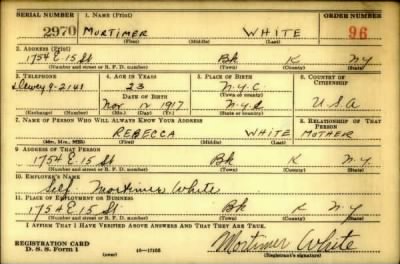 SERIAL NUMBER 1. NAME (Print) ORDER NUMBER
2970 MORTIMER WHITE 96
(First) (Middle) (Last)
2. ADDRESS (Print)
1754 E. 15 St Bk K NY
(Number and street or R. F. D. number) (Town) (County) (State)
3. TELEPHONE 4. AGE IN YEARS 5. PLACE OF BIRTH 6. COUNTRY OF CITIZENSHIP
Dewey 9-2141 23 N.Y.C.
DATE OF BIRTH (Town or county)
Nov 12 1917 N.Y.C USA
(Exchange) (Number) (Mo.) (Day) (Yr.) (State or country)
7. NAME OF PERSON WHO WILL ALWAYS KNOW YOUR ADDRESS 8. RELATIONSHIP OF THAT PERSON
REBECCA WHITE MOTHER
(Mr., Mrs., Miss) (First) (Middle) (Last)
9. ADDRESS OF THAT PERSON
1754 E. 15 St Bk K N-Y
(Number and street or R. F. D. number) (Town) (County) (State)
10. EMPLOYER'S NAME
Self Mortimer White
11. PLACE OF EMPLOYMENT OR BUSINESS
1754 E 15 St Bk K NY
(Number and street or R. F. D. number) (Town) (County) (State)
I AFFIRM THAT I HAVE VERIFIED ABOVE ANSWERS AND THAT THEY ARE TRUE.
REGISTRATION CARD Mortimer White
D. S. S. Form 1 (over) 16-17105 (Registrant's signature)